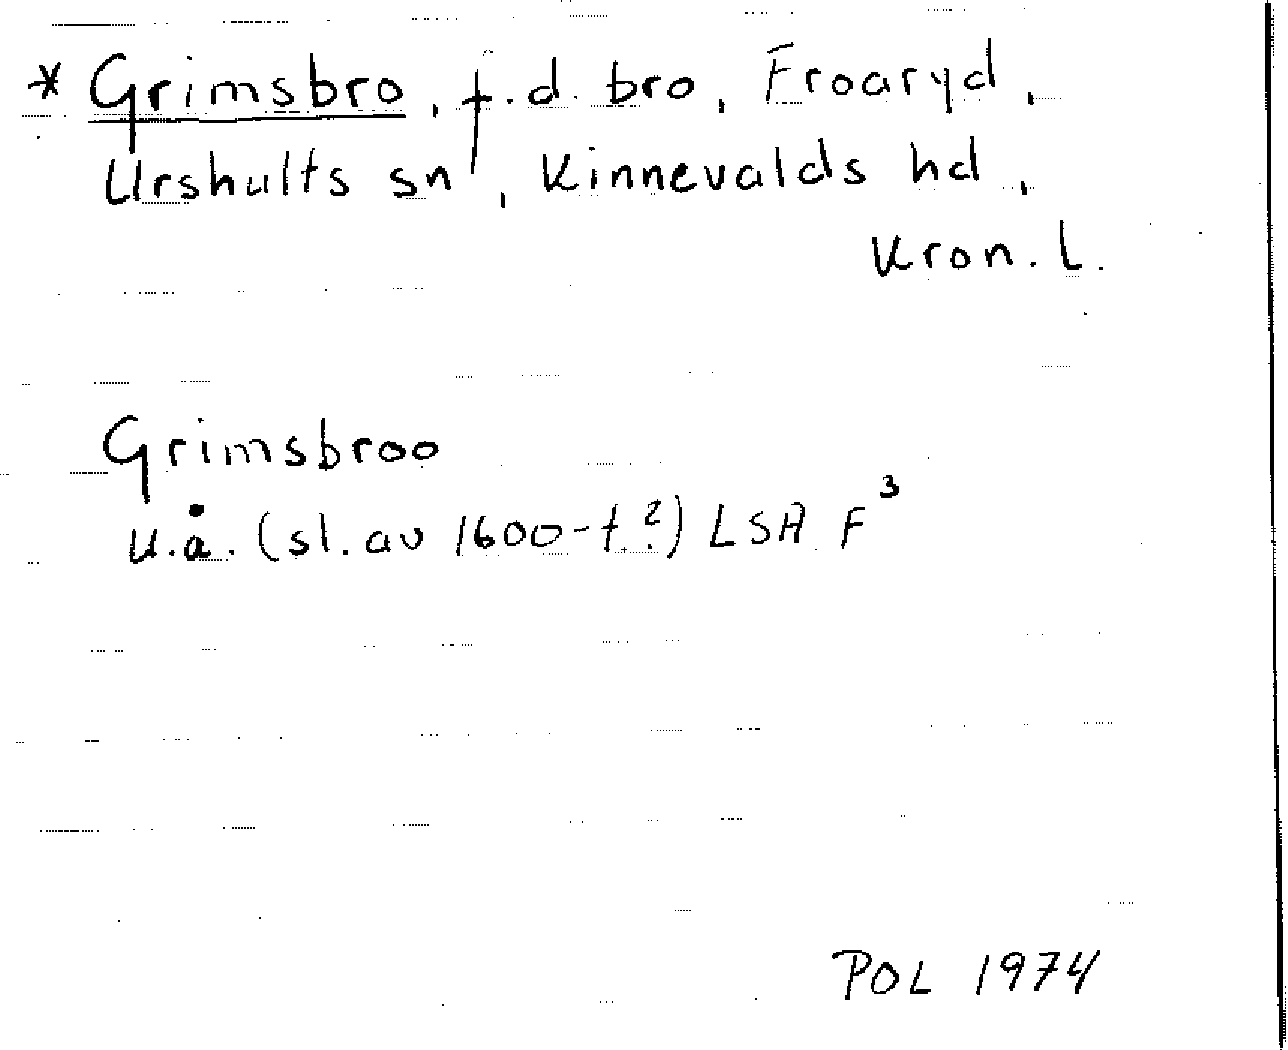 * Grimsbro, f.d. bro, Froaryd,
Urshults sn, Kinnevalds hd,
Kron. l.
Grimsbroo
u.å. (sl. av 1600-t.?) LSA F³
POL 1974